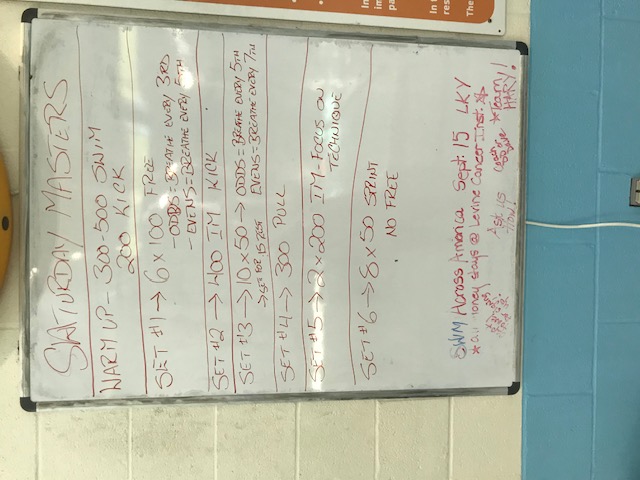 SATURDAY MASTERS
WARM UP - 300-500 SWIM
200 KICK
SET #1 → 6 x 100 FREE
- ODDS = BREATHE EVERY 3RD
- EVENS = BREATHE EVERY 5TH
SET #2 → 400 IM KICK
SET #3 → 10 x 50 → ODDS = BREATHE EVERY 5TH
→ SET FOR 15 REST EVENS = BREATHE EVERY 7TH
SET #4 → 300 PULL
SET #5 → 2 x 200 IM - FOCUS ON
TECHNIQUE
SET #6 → 8 x 50 SPRINT
NO FREE
SWIM Across America Sept. 15 LKY
* all money stays @ Levine Cancer Inst. *
Ask us
How!
Coach
or
Dave
* Team
HARY!
In
im
pa
In t
res
The